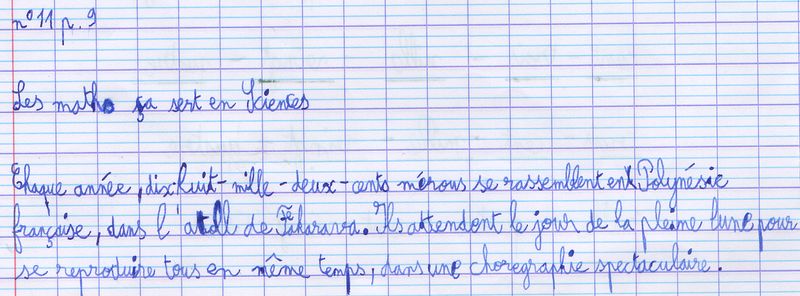 n°11 p.9
Les maths ça sert en Sciences
Chaque année, dix-huit-mille-deux-cents mérous se rassemblent en Polynésie
française, dans l'atoll de Fakarava. Ils attendent le jour de la pleine lune pour
se reproduire tous en même temps, dans une choregraphie spectaculaire.